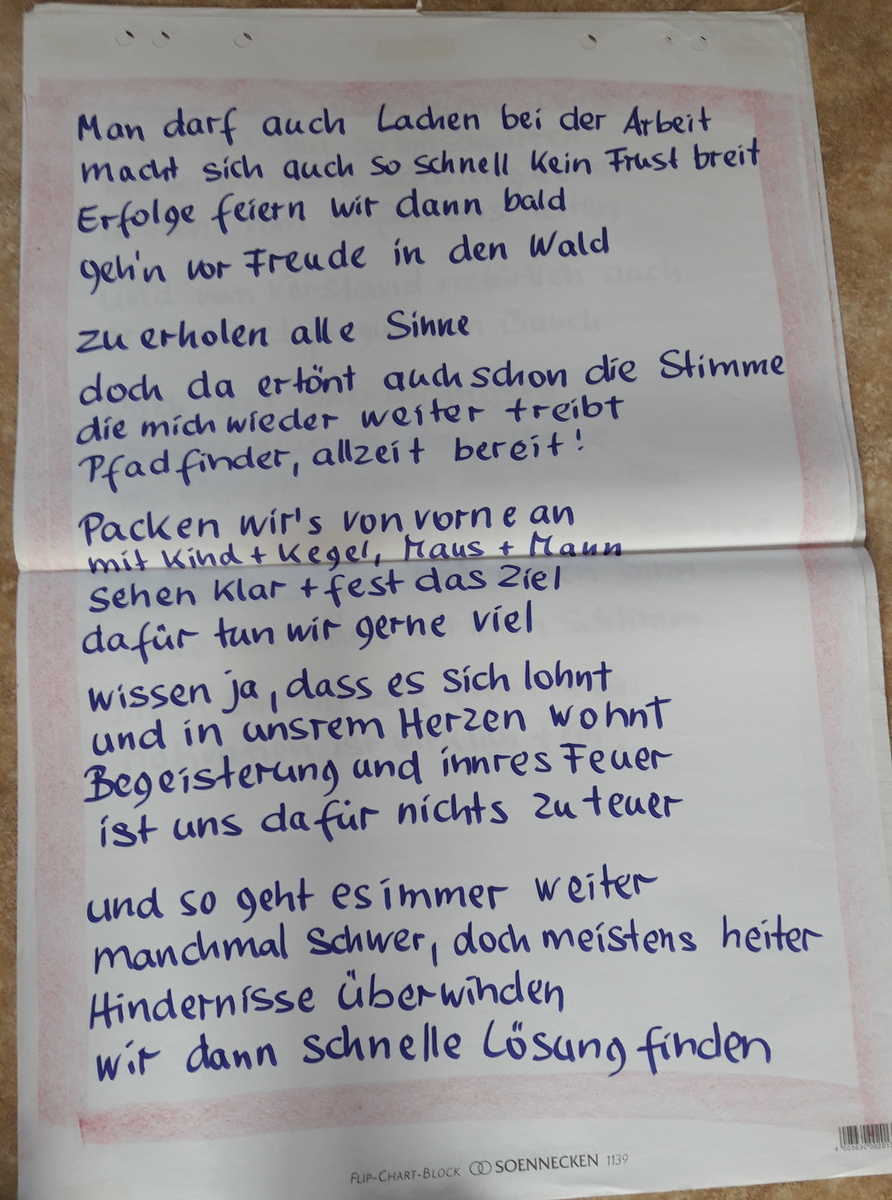 Man darf auch Lachen bei der Arbeit
macht sich auch so schnell kein Frust breit
Erfolge feiern wir dann bald
geh'n vor Freude in den Wald
zu erholen alle Sinne
doch da ertönt auch schon die Stimme
die mich wieder weiter treibt
Pfadfinder, allzeit bereit!
Packen wir's von vorne an
mit Kind + Kegel, Maus + Mann
sehen klar + fest das Ziel
dafür tun wir gerne viel
wissen ja, dass es sich lohnt
und in unsrem Herzen wohnt
Begeisterung und innres Feuer
ist uns dafür nichts zu teuer
und so geht es immer weiter
manchmal schwer, doch meistens heiter
Hindernisse überwinden
wir dann schnelle Lösung finden
FLIP-CHART-BLOCK SOENNECKEN 1139